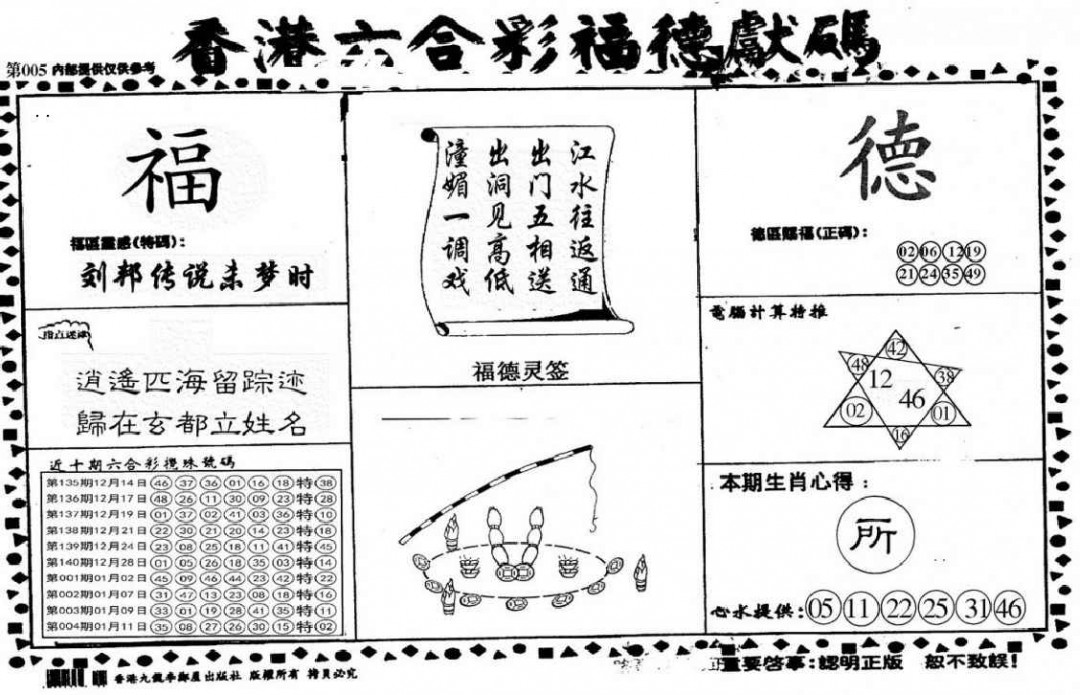 香港六合彩福德獻碼
第005 内部提供仅供参考
福
福區靈感(特碼):
刘邦传说未梦时
逍遥四海留踪迹
歸在玄都立姓名
近十期六合彩攪珠號碼
第135期12月14日 46 37 36 01 16 18 特 38
第136期12月17日 48 26 11 30 09 23 特 28
第137期12月19日 01 37 02 41 03 36 特 10
第138期12月21日 22 30 21 20 14 23 特 18
第139期12月24日 23 08 25 18 11 41 特 45
第140期12月28日 01 05 26 18 35 03 特 14
第001期01月02日 45 09 46 44 23 42 特 22
第002期01月07日 31 47 13 23 08 18 特 16
第003期01月09日 33 01 19 28 41 35 特 11
第004期01月11日 35 08 27 26 30 15 特 02
江水往返通
出门五相送
出洞见高低
潼媚一调戏
福德灵签
德
德區賜福(正碼):
02 06 12 19
21 24 35 49
電腦計算特推
42
48 12 38
46
02 01
16
本期生肖心得:
所
心水提供: 05 11 22 25 31 46
香港九龍李鄭屋出版社 版權所有 拷貝必究
重要啓事:認明正版 恕不致誤!